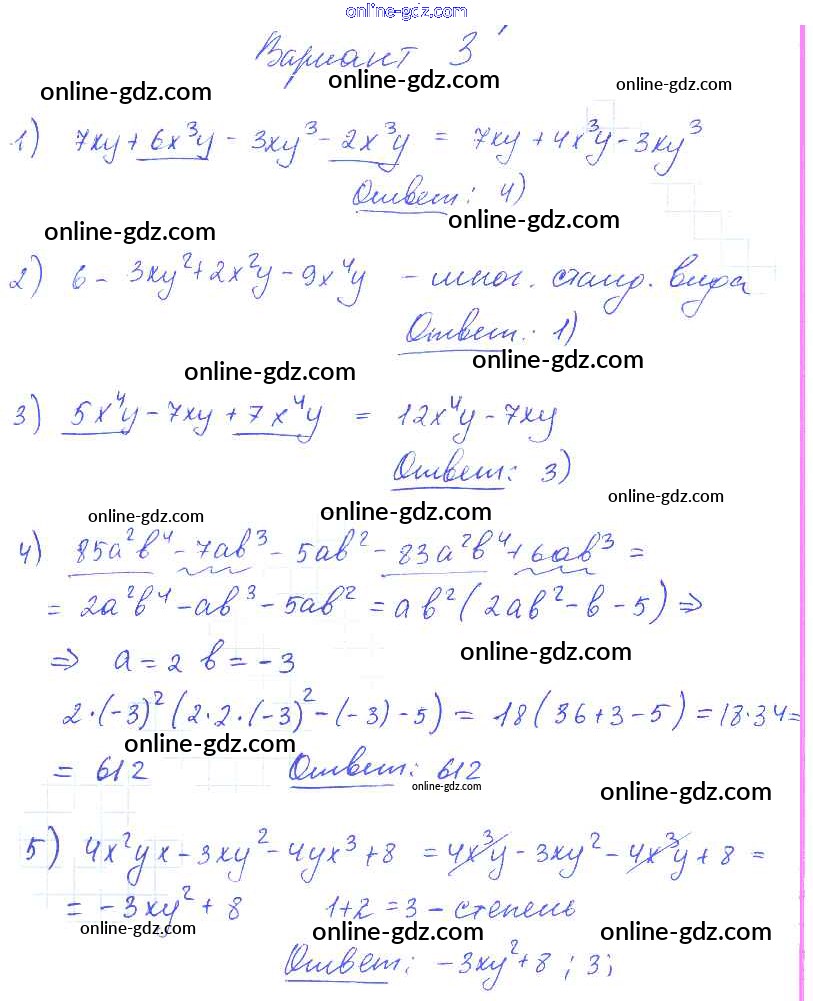 online-gdz.com
Вариант 3
online-gdz.com online-gdz.com online-gdz.com
1) 7xy + 6x³y - 3xy³ - 2x³y = 7xy + 4x³y - 3xy³
Ответ: 4)
online-gdz.com online-gdz.com
2) 6 - 3xy² + 2x²y - 9x⁴y - мног. станд. вида
Ответ: 1)
online-gdz.com online-gdz.com
3) 5x⁴y - 7xy + 7x⁴y = 12x⁴y - 7xy
Ответ: 3)
online-gdz.com
online-gdz.com online-gdz.com
4) 85a²b⁴ - 7ab³ - 5ab² - 83a²b⁴ + 6ab³ =
= 2a²b⁴ - ab³ - 5ab² = ab²(2ab² - b - 5) ⇒
⇒ a = 2 b = -3
online-gdz.com
2·(-3)²(2·2·(-3)² - (-3) - 5) = 18(36 + 3 - 5) = 18·34 =
online-gdz.com
= 612 Ответ: 612
online-gdz.com online-gdz.com
5) 4x²yx - 3xy² - 4yx³ + 8 = 4x³y - 3xy² - 4x³y + 8 =
= -3xy² + 8 1+2=3 - степень
online-gdz.com online-gdz.com online-gdz.com
Ответ: -3xy² + 8; 3;